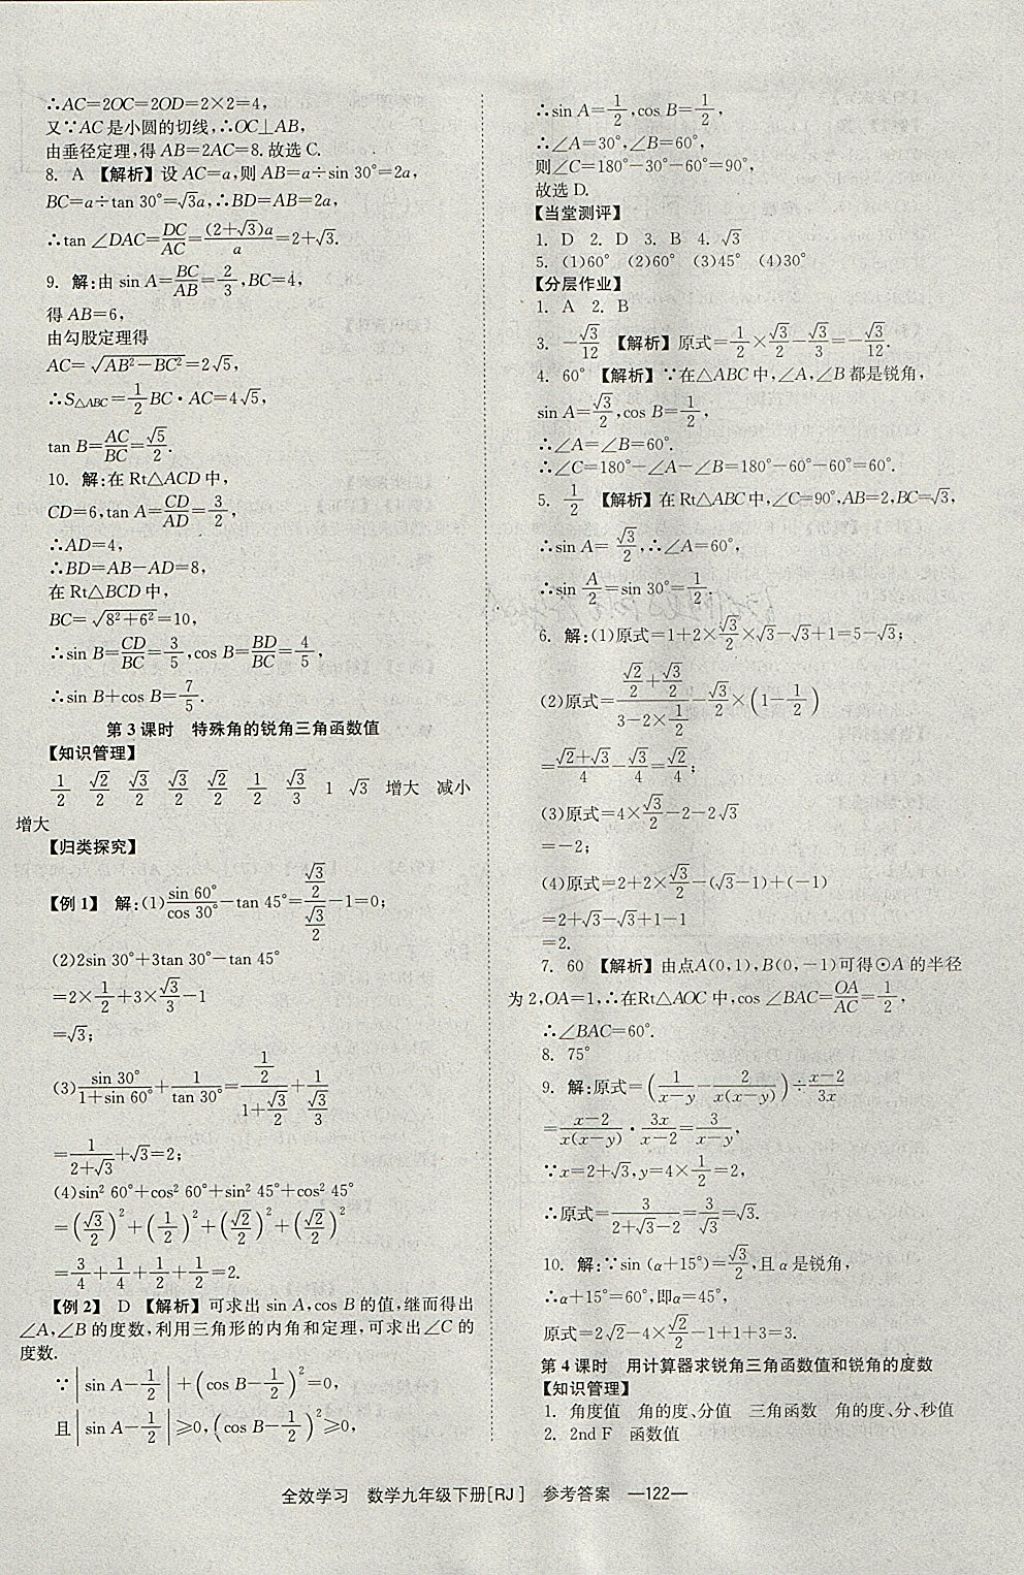 ∴AC=2OC=2OD=2×2=4,
又∵AC是小圆的切线,∴OC⊥AB,
由垂径定理,得AB=2AC=8.故选C.
8. A 【解析】设AC=a,则AB=a÷sin 30°=2a,
BC=a÷tan 30°=√3a,∴BD=AB=2a,
∴tan ∠DAC=DC/AC=(2+√3)a/a=2+√3.
9. 解:由sin A=BC/AB=2/3,BC=4,
得AB=6,
由勾股定理得
AC=√(AB²-BC²)=2√5,
∴S△ABC=1/2 BC·AC=4√5,
tan B=AC/BC=√5/2.
10. 解:在Rt△ACD中,
CD=6,tan A=CD/AD=3/2,
∴AD=4,
∴BD=AB-AD=8,
在Rt△BCD中,
BC=√(8²+6²)=10,
∴sin B=CD/BC=3/5,cos B=BD/BC=4/5,
∴sin B+cos B=7/5.
第3课时 特殊角的锐角三角函数值
【知识管理】
1/2 √2/2 √3/2 √3/2 √2/2 1/2 √3/3 1 √3 增大 减小
增大
【归类探究】
【例1】 解:(1)sin 60°/cos 30°-tan 45°=(√3/2)/(√3/2)-1=0;
(2)2sin 30°+3tan 30°-tan 45°
=2×1/2+3×√3/3-1
=√3;
(3)sin 30°/(1+sin 60°)+1/tan 30°=(1/2)/(1+√3/2)+1/(√3/3)
=1/(2+√3)+√3=2;
(4)sin² 60°+cos² 60°+sin² 45°+cos² 45°
=(√3/2)²+(1/2)²+(√2/2)²+(√2/2)²
=3/4+1/4+1/2+1/2=2.
【例2】 D 【解析】可求出sin A,cos B的值,继而得出
∠A,∠B的度数,利用三角形的内角和定理,可求出∠C的
度数.
∵|sin A-1/2|+(cos B-1/2)²=0,
且|sin A-1/2|≥0,(cos B-1/2)²≥0,
∴sin A=1/2,cos B=1/2,
∴∠A=30°,∠B=60°,
则∠C=180°-30°-60°=90°,
故选D.
【当堂测评】
1. D 2. D 3. B 4. √3
5. (1)60° (2)60° (3)45° (4)30°
【分层作业】
1. A 2. B
3. -√3/12 【解析】原式=1/2×√3/2-√3/3=-√3/12.
4. 60° 【解析】∵在△ABC中,∠A,∠B都是锐角,
sin A=√3/2,cos B=1/2,
∴∠A=∠B=60°.
∴∠C=180°-∠A-∠B=180°-60°-60°=60°.
5. 1/2 【解析】在Rt△ABC中,∠C=90°,AB=2,BC=√3,
∴sin A=√3/2,∴∠A=60°,
∴sin A/2=sin 30°=1/2.
6. 解:(1)原式=1+2×√3/2×√3-√3+1=5-√3;
(2)原式=(√2/2+√3/2)/(3-2×1/2)-√3/2×(1-1/2)
=(√2+√3)/4-√3/4=√2/4;
(3)原式=4×√3/2-2-2√3
=-2;
(4)原式=2+2×√3/2-(√3-1)+(-1)
=2+√3-√3+1-1
=2.
7. 60 【解析】由点A(0,1),B(0,-1)可得⊙A的半径
为2,OA=1,∴在Rt△AOC中,cos ∠BAC=OA/AC=1/2,
∴∠BAC=60°.
8. 75°
9. 解:原式=(1/(x-y)-2/(x(x-y)))÷(x-2)/3x
=(x-2)/(x(x-y))·3x/(x-2)=3/(x-y),
∵x=2+√3,y=4×1/2=2,
∴原式=3/(2+√3-2)=3/√3=√3.
10. 解:∵sin (α+15°)=√3/2,且α是锐角,
∴α+15°=60°,即α=45°,
原式=2√2-4×√2/2-1+1+3=3.
第4课时 用计算器求锐角三角函数值和锐角的度数
【知识管理】
1. 角度值 角的度、分值 三角函数 角的度、分、秒值
2. 2nd F 函数值
全效学习 数学九年级下册[RJ] 参考答案 —122—